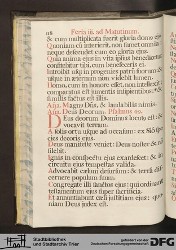 118 Feria iii. ad Matutinum.
& cum multiplicata fuerit gloria domus eius.
Quoniam cum interierit, non sumet omnia:
neque descendet cum eo gloria eius.
Quia anima eius in vita ipsius benedicetur:
confitebitur tibi, cum benefeceris ei.
Introibit usque in progenies patrum suorum:
usque in æternum non videbit lumen.
Homo, cum in honore esset, non intellexit:
comparatus est jumentis insipientibus, &
similis factus est illis.
Aña. Magnus Dñs, & laudabilis nimis
Aña. Deus Deorum. Psalmus
Deus deorum Dominus locutus est: &
vocavit terram.
A solis ortu usque ad occasum: ex Sion species
ejus decoris ejus.
Deus manifeste veniet: Deus noster & non
silebit.
Ignis in conspectu ejus exardescet: & in
circuitu ejus tempestas valida.
Advocabit cœlum desursum: & terram discernere
populum suum.
Congregate illi sanctos ejus: qui ordinant
testamentum ejus super sacrificia.
Et annuntiabunt cœli justitiam ejus: quoniam
Deus judex est.
Stadtbibliothek
und Stadtarchiv Trier
gefördert von der
Deutschen Forschungsgemeinschaft
DFG